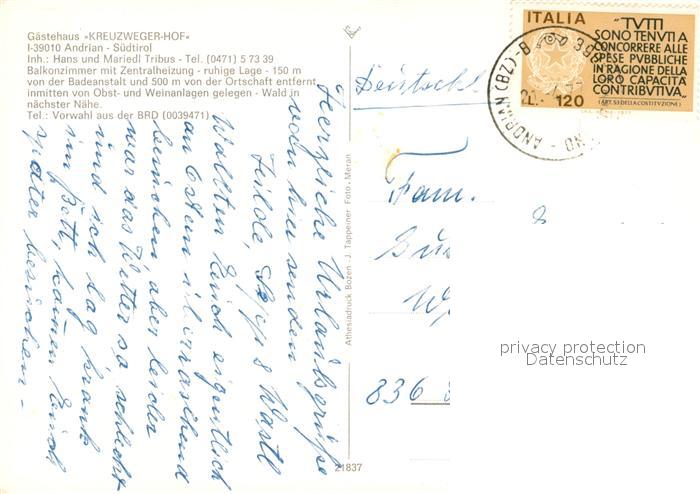 Gästehaus »KREUZWEGER-HOF«
I-39010 Andrian - Südtirol
Inh.: Hans und Mariedl Tribus - Tel. (0471) 5 73 39
Balkonzimmer mit Zentralheizung - ruhige Lage - 150 m
von der Badeanstalt und 500 m von der Ortschaft entfernt
inmitten von Obst- und Weinanlagen gelegen - Wald in
nächster Nähe.
Tel.: Vorwahl aus der BRD (0039471)
Herzliche Urlaubsgrüße
von hier senden
Sepp & Wastl
Wollten Euch eigentlich
an Ostern überraschend
besuchen, aber leider
war das Wetter so schlecht
und ich lag krank
im Bett, kamen Euch
später besuchen -
Athesiadruck Bozen - J. Tappeiner Foto, Meran
21837
ITALIA
120
"TVTTI
SONO TENVTI A
CONCORRERE ALLE
SPESE PVBBLICHE
IN RAGIONE DELLA
LORO CAPACITÀ
CONTRIBVTIVA."
(ART. 53 DELLA COSTITVZIONE)
ANDRIAN (BZ)
Deutschl
Fam.
836
privacy protection
Datenschutz